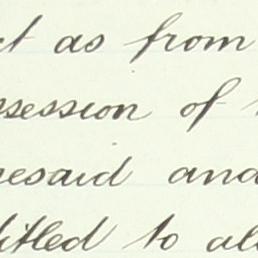 ct as from
ssession of
resaid and
titled to all